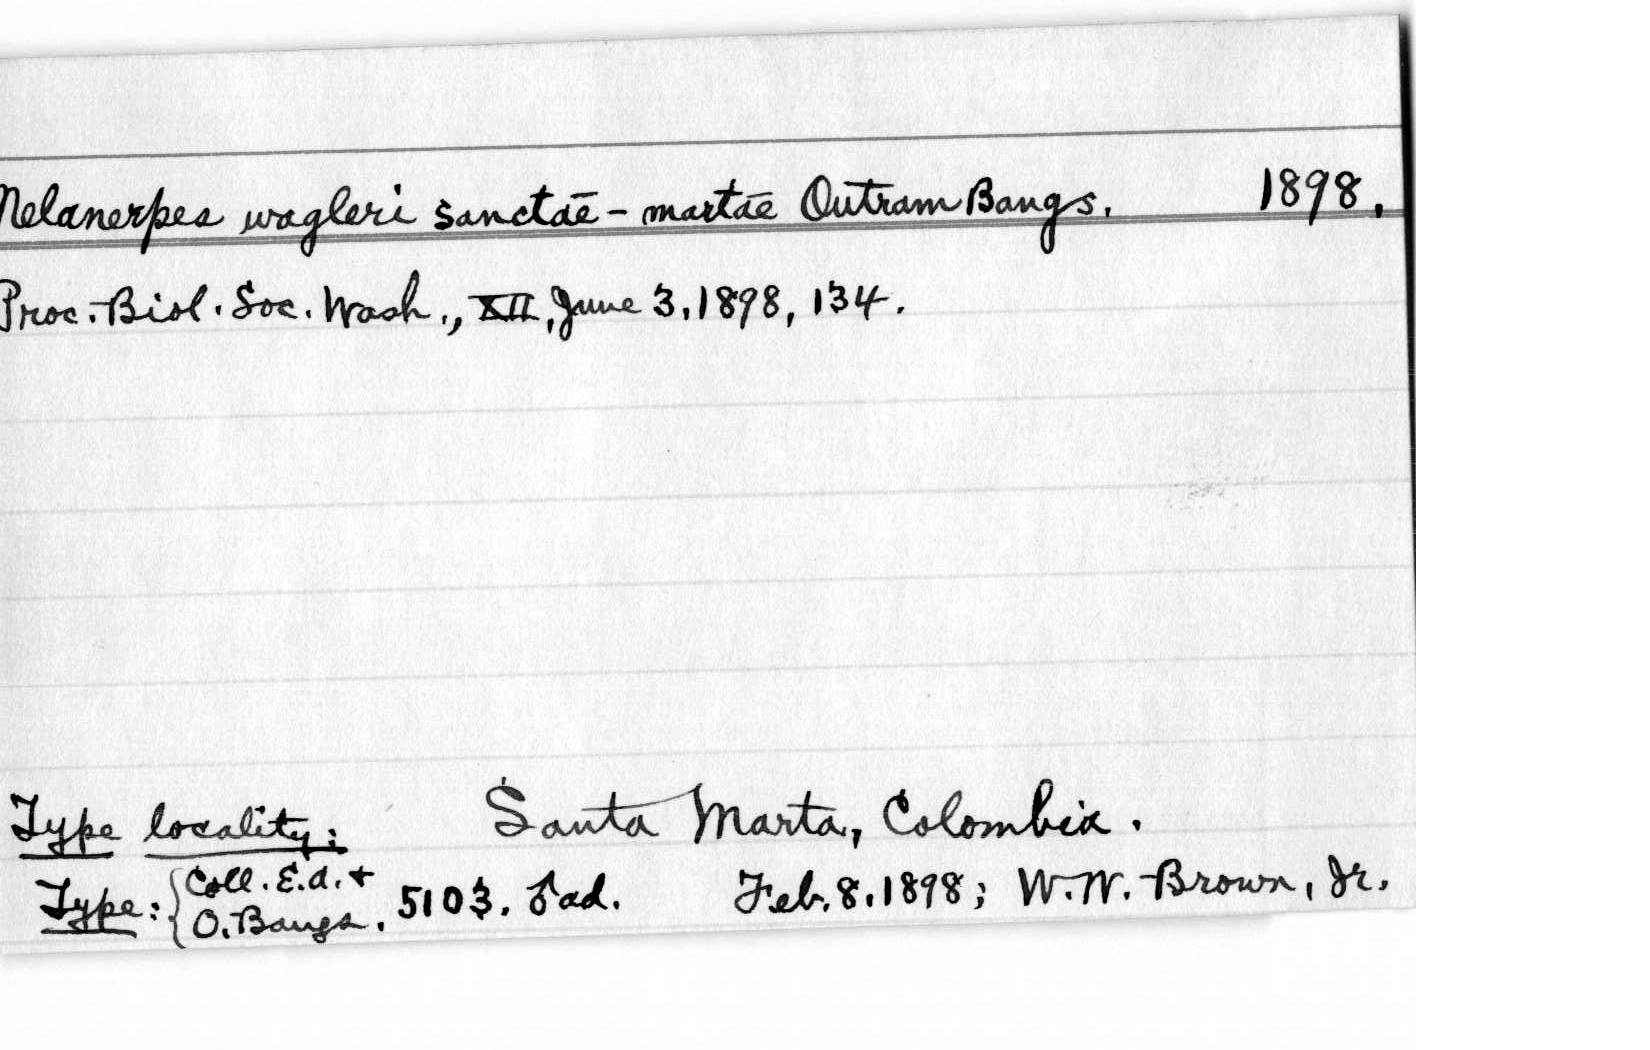 Melanerpes wagleri sanctae-martae Outram Bangs. 1898.
Proc. Biol. Soc. Wash., XII, June 3, 1898, 134.
Type locality: Santa Marta, Colombia.
Type: { Coll. E.A. + O. Bangs. 5103. ♂ ad. Feb. 8, 1898; W. W. Brown, Jr.